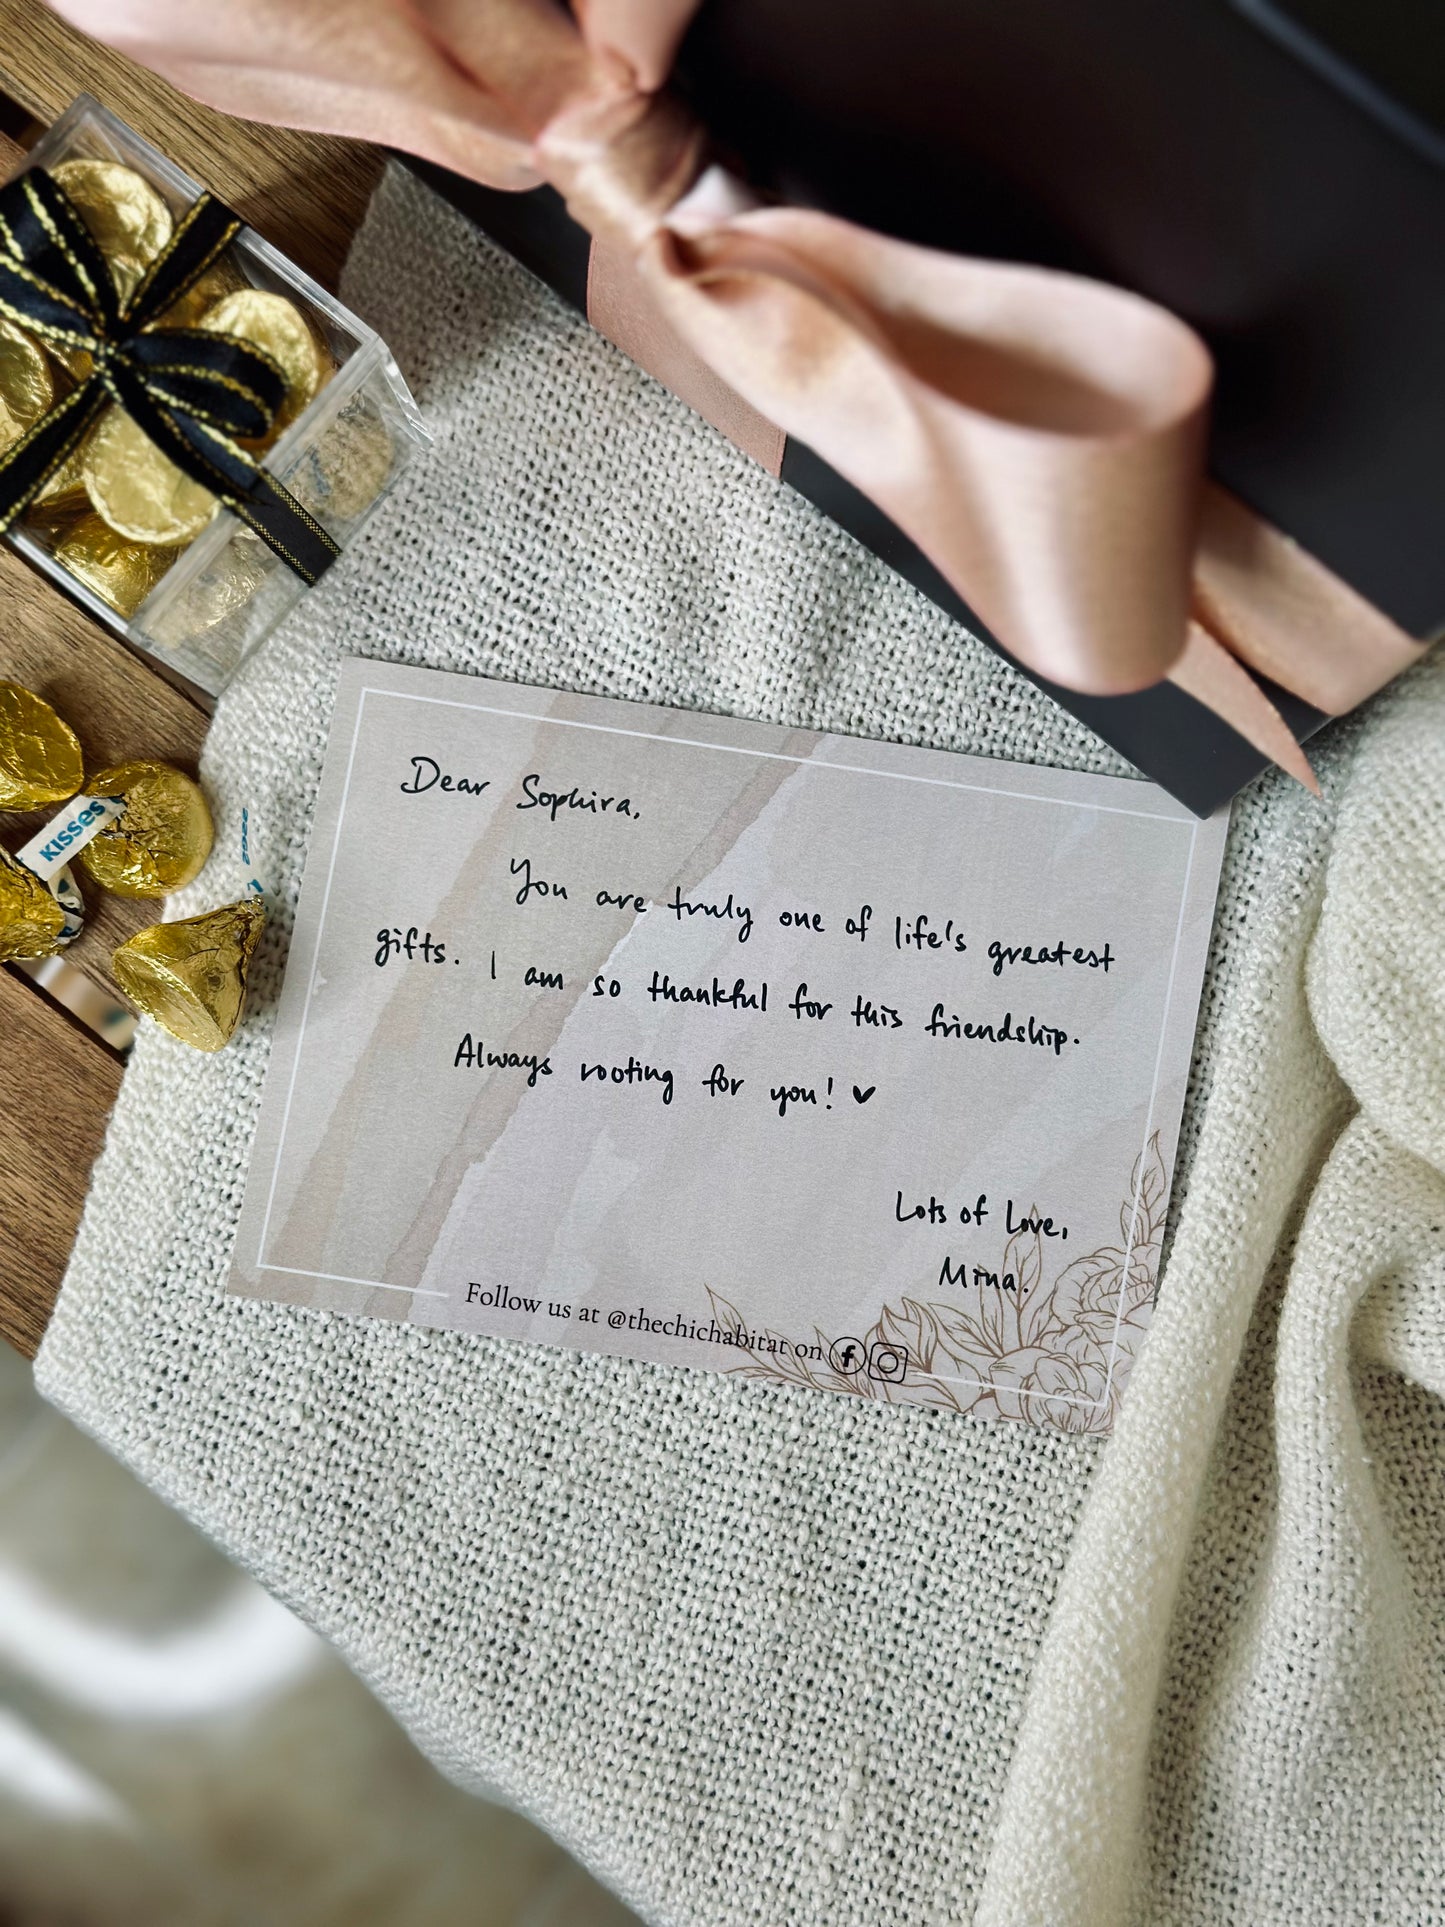 KISSES
Dear Sophira,
You are truly one of life's greatest
gifts. I am so thankful for this friendship.
Always rooting for you! ♥
Lots of Love,
Mina.
Follow us at @thechichabitat on